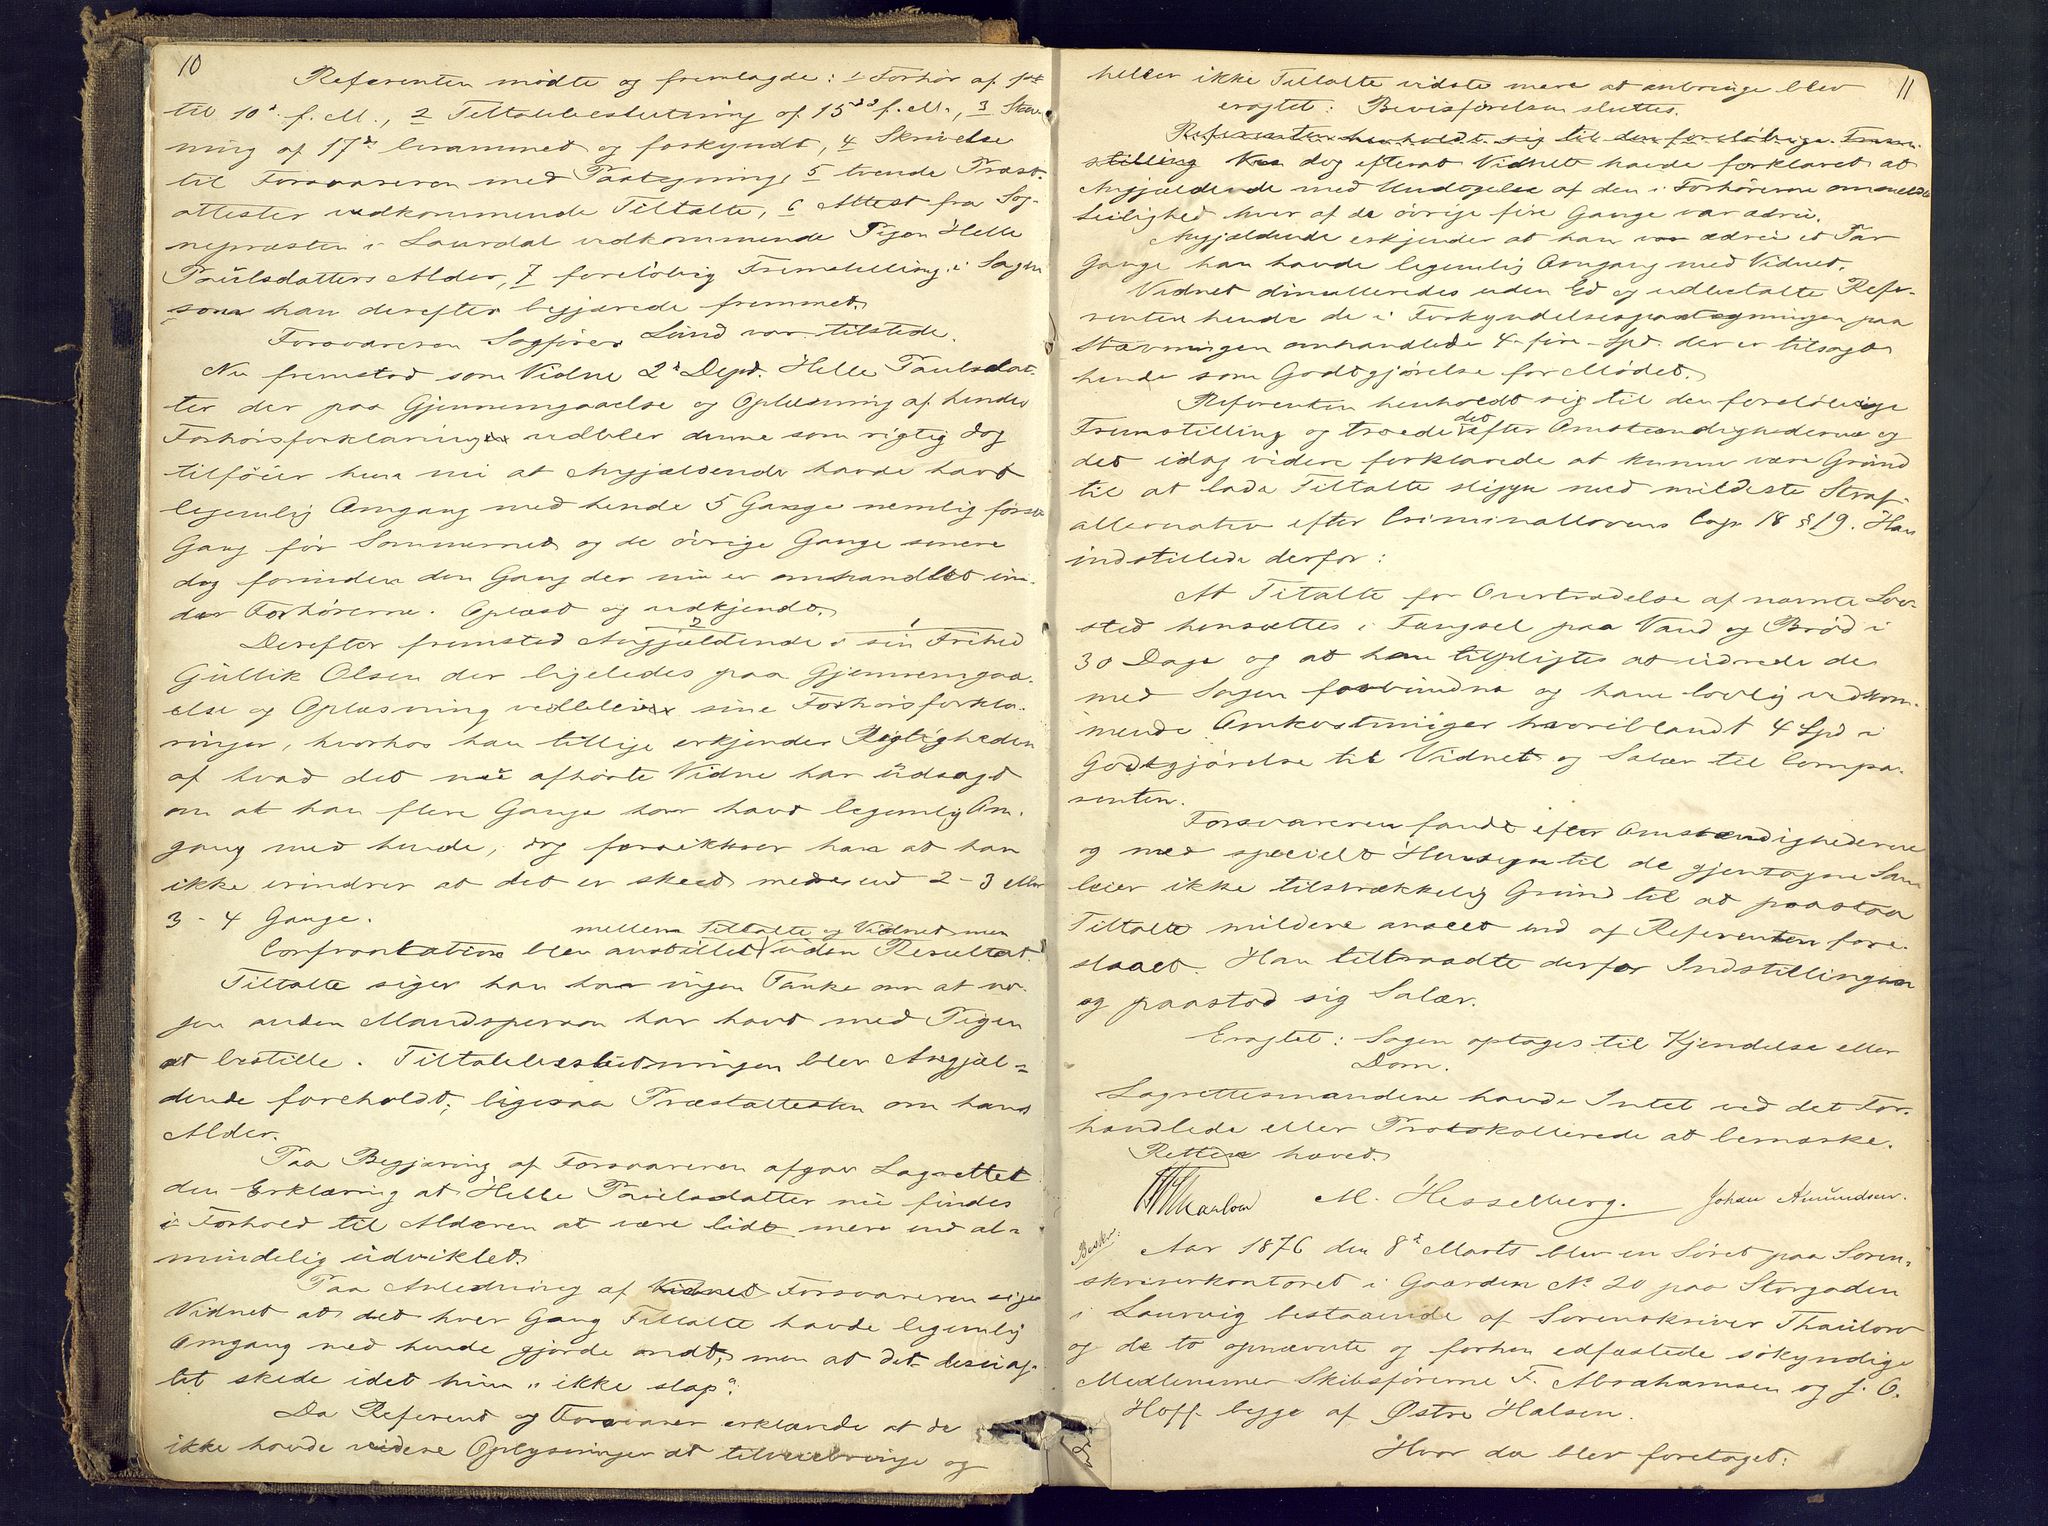 10
Referenten mødte og fremlagde: 1 Forhør af 1ste
til 10de f. M., 2 Tiltalebeslutning af 15de f. M., 3 Stev-
ning af 17de berammet og forkyndt, 4 Skrivelse
til Forsvareren med Paategning, 5 tvende Præst-
attester vedkommende Tiltalte, 6 Attest fra Sog-
nepræsten i Laurdal vedkommende Pigen Helle
Paulsdatters Alder, 7 foreløbig Fremstilling i Sagen
som han derefter begjærede fremmet.
Forsvareren Sagfører Lund var tilstede.
Nu fremstod som Vidne 2det Depd. Helle Paulsdat-
ter der paa Gjennemgaaelse og Oplæsning af hendes
Forhørsforklaring vedblev denne som rigtig dog
tilføier hun nu at Angjældende havde havt
legemlig Omgang med hende 5 Gange nemlig første
Gang før Sommeren og de øvrige Gange senere
dog forinden den Gang der nu er omhandlet un-
der Forhørerne. Oplæst og vedkjendt.
Derefter fremsted Angjældende i sin Frihed
Gullik Olsen der ligeledes paa Gjennemgaa-
else og Oplæsning vedblev sine Forhørsforkla-
ringer, hvorhos han tillige erkjender Rigtigheden
af hvad det nu afhørte Vidne har udsagt
om at han flere Gange har havt legemlig Om-
gang med hende, dog forsikkrer han at han
ikke erindrer at det er skeed mere end 2-3 eller
3-4 Gange.
mellem Tiltalte og Vidnet men
Confrontation blev anstillet uden Resultat.
Tiltalte siger han har ingen Tanke om at no-
gen anden Mandsperson har havt med Pigen
at bestille. Tiltalebeslutningen blev Angjæl-
dende foreholdt, ligesaa Præstattesten om hans
Alder.
Paa Begjæring af Forsvareren afgav Lagrettet
den Erklæring at Helle Paulsdatter nu findes
i Forhold til Alderen at være lidt mere end al-
mindelig udviklet.
Paa Anledning af Vidnet Forsvareren siger
Vidnet at det hver Gang Tiltalte havde legemlig
Omgang med hende gjorde ondt, men at det desuag-
tet skede idet hun "ikke slap".
Da Referent og Forsvarer erklærede at de
ikke havde videre Oplysninger at tilveiebringe og
11
heller ikke Tiltalte vidste mere at anbringe blev
eragtet: Bevisførelsen sluttes.
Referenten henholdt sig til den foreløbige Frem-
stilling dog efterat Vidnet havde forklaret at
Angjældende med Undtagelse af den i Forhørerne ommeldte
Leilighed hver af de øvrige fire Gange var ædru.
Angjældende erkjender at han var ædru et Par
Gange han havde legemlig Omgang med Vidnet.
Vidnet dimitteredes uden Ed og udbetalte Refe-
renten hende de i Forkyndelsespaategningen paa
Stævningen omhandlede 4-fire-Spd. der er tilsagt
hende som Godtgjørelse for Mødet.
Referenten henholdt sig til den foreløbige
Fremstilling og troede det efter Omstændighederne og
det idag videre forklarede at kunne være Grund
til at lade Tiltalte slippe med mildeste Straf-
alternativ efter Criminallovens Cap 18 § 19. Han
indstillede derfor:
At Titalte for Overtrædelse af nævnte Lov-
sted hensættes i Fængsel paa Vand og Brød i
30 Dage og at han tilpligtes at udrede de
med Sagen forbundne og ham lovlig vedkom-
mende Omkostninger hvoriblandt 4 Spd i
Godtgjørelse til Vidnet og Salær til Compa-
renten.
Forsvareren fandt efter Omstændighederne
og med specielt Hensyn til de gjentagne Sam-
leier ikke tilstrækkelig Grund til at paastaa
Tiltalte mildere anseet end af Referenten fore-
slaaet. Han tiltraadte derfor Indstillingen
og paastod sig Salær.
Eragtet: Sagen optages til Kjendelse eller
Dom.
Lagrettesmændene havde Intet ved det For-
handlede eller Protokollerede at bemærke.
Retten hævet.
Thaulow M. Hesselberg. Johan Amundsen.
Beskr:
Aar 1876 den 8de Marts blev en Søret paa Soren-
skriverkontoret i Gaarden No 20 paa Storgaden
i Laurvig bestaaende af Sorenskriver Thaulow
og de to opnævnte og forhen edfæstede søkyndige
Medlemmer Skibsførerne F. Abrahamsen og J. C.
Hoff begge af Østre Halsen.
Hvor da blev foretaget: